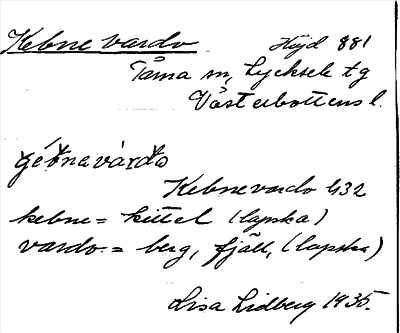 Kebne vardo Höjd 881
Tärna sn, Lycksele tg
Västerbottens l.
gēƀnavárdo
Kebnevardo 432
kebne = kittel (lapska)
vardo = berg, fjäll, (lapska)
Lisa Lidberg 1935.